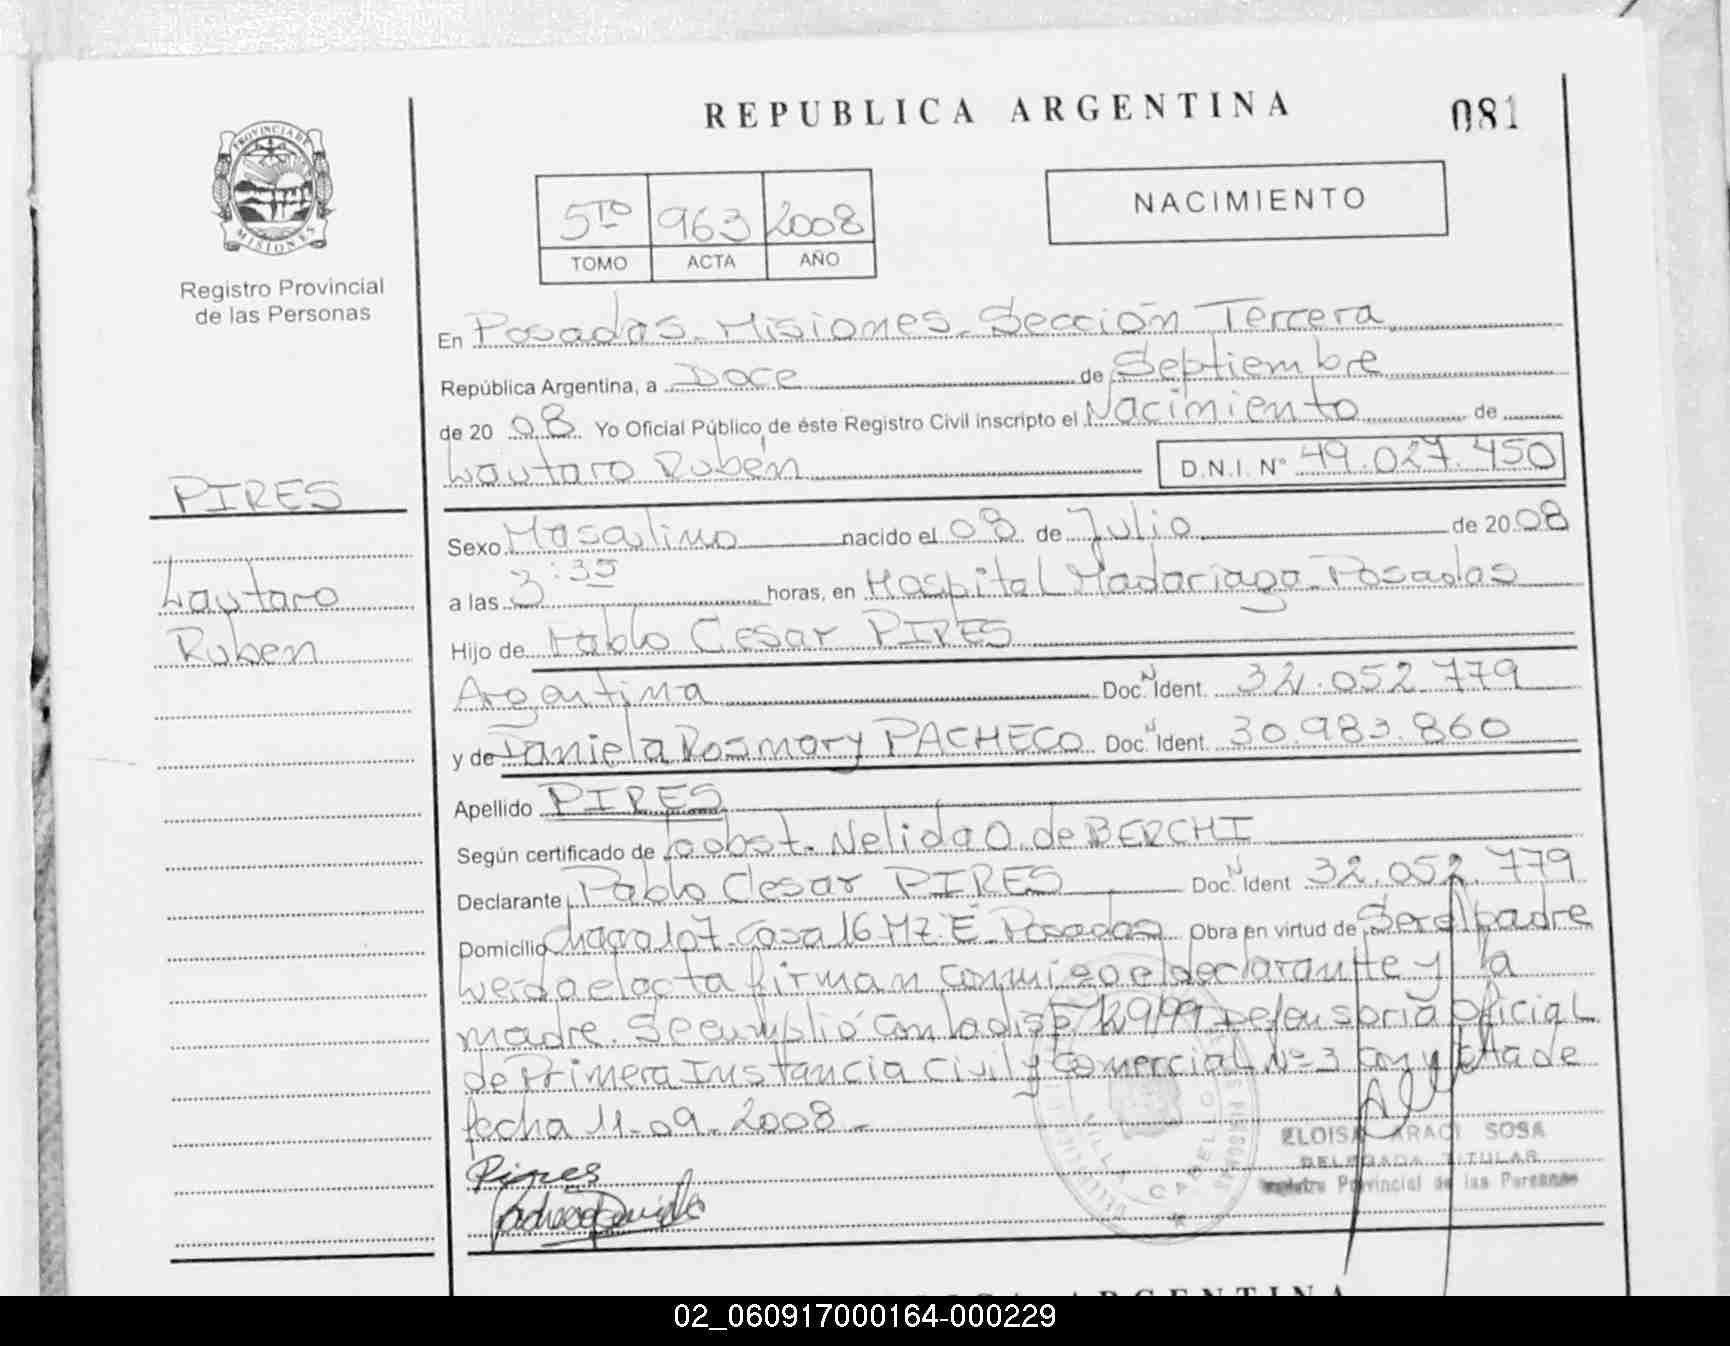 REPUBLICA ARGENTINA
081
PROVINCIA DE
MISIONES
Registro Provincial
de las Personas
5TO 963 2008
TOMO ACTA AÑO
NACIMIENTO
En Posadas - Misiones - Sección Tercera
República Argentina, a Doce de Septiembre
de 20 08 Yo Oficial Público de éste Registro Civil inscripto el Nacimiento de
Lautaro Rubén D.N.I. Nº 49.027.450
PIRES
Lautaro
Ruben
Sexo Masculino nacido el 08 de Julio de 20 08
a las 3:35 horas, en Hospital Madariaga - Posadas
Hijo de Pablo Cesar PIRES
Argentina Doc. Ident. 32.052.779
y de Daniela Rosmary PACHECO Doc. Ident. 30.983.860
Apellido PIRES
Según certificado de obst. Nelida O. de BERCHI
Declarante Pablo Cesar PIRES Doc. Ident 32.052.779
Domicilio Chacra 107 - Casa 16 MZ. E - Posadas Obra en virtud de Ser el padre
Leida el acta firman conmigo el declarante y la
madre. Se cumplió con la disp 129/99 Defensoria Oficial
de Primera Instancia Civil y Comercial Nº 3 con vista de
fecha 11-09-2008 -
Pires
VILLA CABELLO
ELOISA ARACI SOSA
DELEGADA TITULAR
Registro Provincial de las Personas
REPUBLICA ARGENTINA
02_060917000164-000229